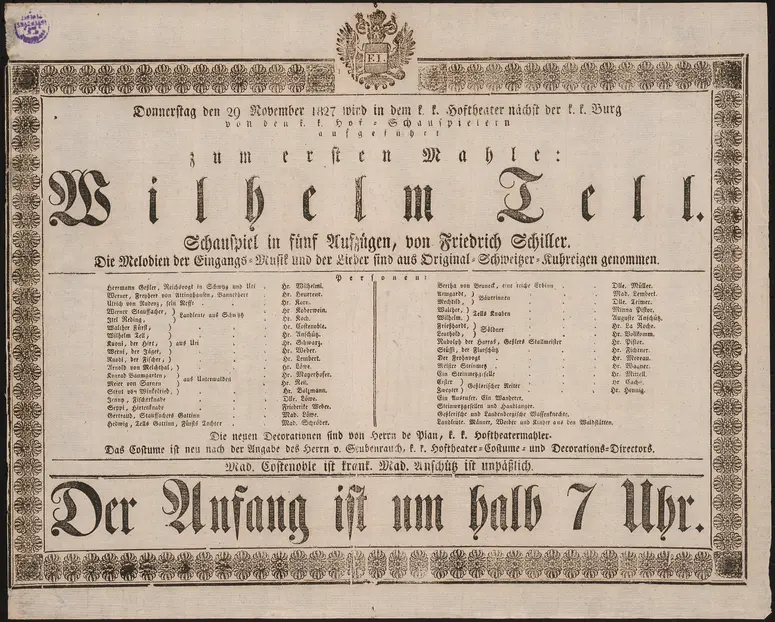 F.I.
Donnerstag den 29 November 1827 wird in dem k. k. Hoftheater nächst der k. k. Burg
von den k. k. Hof-Schauspielern
aufgeführt
zum ersten Mahle:
Wilhelm Tell.
Schauspiel in fünf Aufzügen, von Friedrich Schiller.
Die Melodien der Eingangs-Musik und der Lieder sind aus Original-Schweitzer-Kuhreigen genommen.
Personen:
Herrmann Geßler, Reichsvogt in Schwytz und Uri . Hr. Wilhelmi.
Werner, Freyherr von Attinghausen, Bannerherr . Hr. Heurteur.
Ulrich von Rudenz, sein Neffe . Hr. Korn.
Werner Stauffacher, Hr. Koberwein.
Itel Reding, Landleute aus Schwytz Hr. Koch.
Walther Fürst, Hr. Costenoble.
Wilhelm Tell, Hr. Anschütz.
Kuoni, der Hirt, aus Uri Hr. Schwarz.
Werni, der Jäger, Hr. Weber.
Ruodi, der Fischer, Hr. Lembert.
Arnold von Melchthal, Hr. Löwe.
Konrad Baumgarten, aus Unterwalden Hr. Mayerhofer.
Meier von Sarnen Hr. Reil.
Strut von Winkelried, Hr.
Jenny, Fischerknabe Dlle. Löwe.
Seppi, Hirtenknabe Friederike Weber.
Gertraud, Stauffachers Gattinn Mad. Löwe.
Hedwig, Tells Gattinn, Fürsts Tochter Mad. Schröder.
Bertha von Bruneck, eine reiche Erbinn Dlle. Müller.
Armgardt, Bäuerinnen Mad. Lembert.
Mechtild, Dlle.
Walther, Tells Knaben Minna Pistor.
Wilhelm, Auguste Anschütz.
Frießhardt, Söldner Hr. La Roche.
Leuthold, Hr. Vollkomm.
Rudolph der Harras, Geßlers Stallmeister Hr. Pistor.
Stüssi, der Flurschütz Hr. Fichtner.
Der Frohnvogt Hr. Moreau.
Meister Steinmetz Hr. Wagner.
Ein Steinmetzgeselle Hr. Mittell.
Erster Geßlerischer Reiter Hr.
Zweyter Hr. Hennig.
Ein Ausrufer. Ein Wanderer.
Steinmetzgesellen und Handlanger.
Geßlerische und Landenbergische Waffenknechte.
Landleute, Männer, Weiber und Kinder aus den Waldstätten.
Die neuen Decorationen sind von Herrn de Pian, k. k. Hoftheatermahler.
Das Costume ist neu nach der Angabe des Herrn v. Stubenrauch, k. k. Hoftheater-Costume- und Decorations-Directors.
Mad. Costenoble ist krank. Mad. Anschütz ist unpäßlich.
Der Anfang ist um halb 7 Uhr.